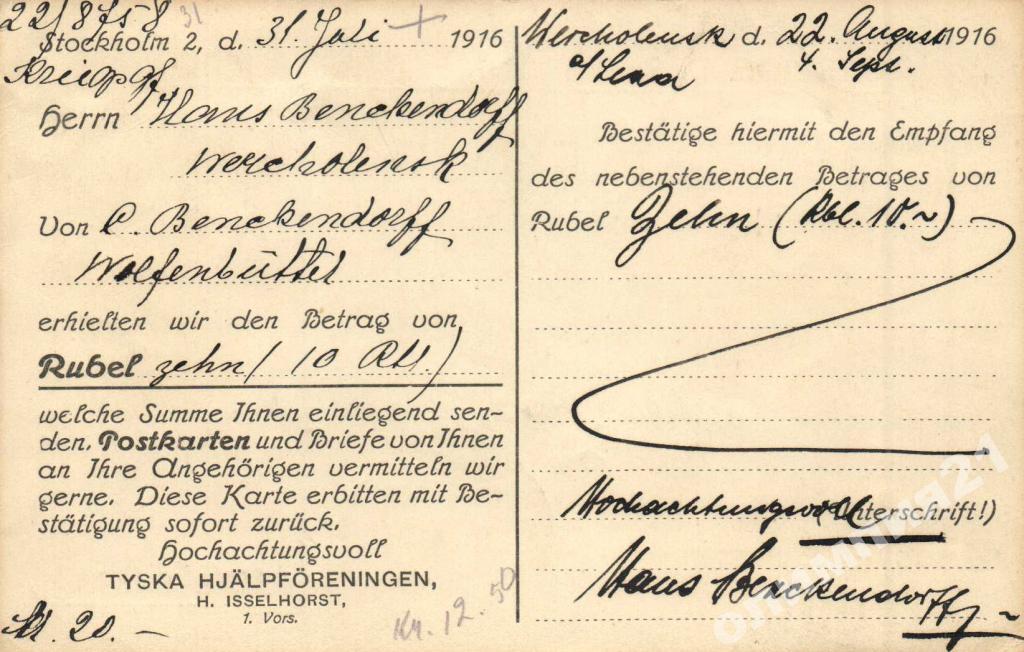 22/8758 31
Stockholm 2, d. 31. Juli + 1916
Kriegsgf.
Herrn Hans Benckendorff
Wercholensk
Von C. Benckendorff
Wolfenbüttel
erhielten wir den Betrag von
Rubel zehn / 10 Rbl.)
welche Summe Ihnen einliegend sen-
den. Postkarten und Briefe von Ihnen
an Ihre Angehörigen vermitteln wir
gerne. Diese Karte erbitten mit Be-
stätigung sofort zurück.
Hochachtungsvoll
TYSKA HJÄLPFÖRENINGEN,
H. ISSELHORST,
1. Vors.
M. 20.—
Kr. 12.50
Wercholensk d. 22. August 1916
a/Lena 4. Sept.
Bestätige hiermit den Empfang
des nebenstehenden Betrages von
Rubel Zehn (Rbl. 10.~)
Hochachtungsvoll (Unterschrift!)
Hans Benckendorff
олимпия21